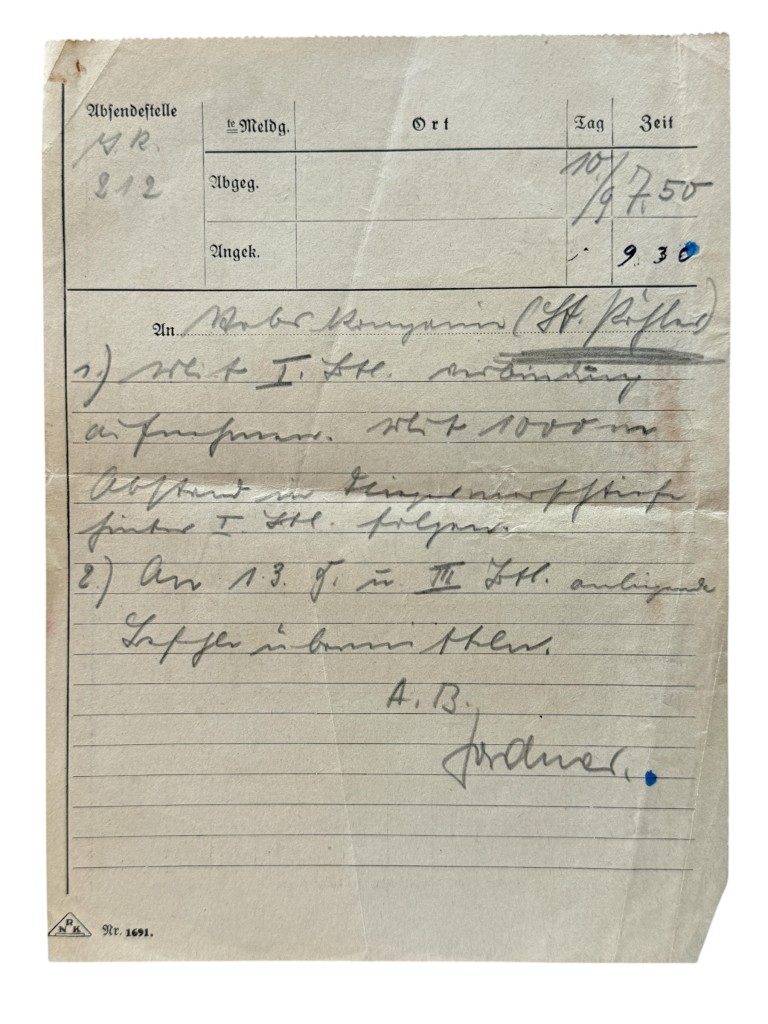 Absendestelle
J.R.
212
te Meldg. Ort Tag Zeit
Abgeg. 10/9 7.50
Angek. 9.30
An Stabs Kompanie (Lt. Köhler)
1.) Mit I. Btl. Verbindung
aufnehmen. Mit 1000 m
Abstand in
hinter I. Btl. folgen.
2.) An 13. u. III Btl. anliegende
Befehle übermitteln.
A.B.
RNK Nr. 1691.